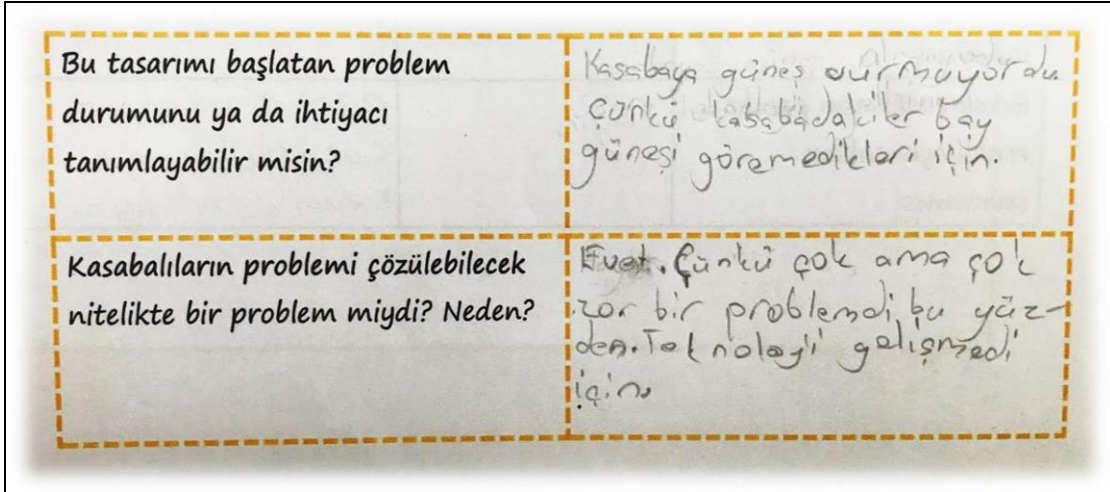 Bu tasarımı başlatan problem
durumunu ya da ihtiyacı
tanımlayabilir misin?
Kasabaya güneş vurmuyordu
çünkü kasabadakiler bay
güneşi göremedikleri için.
Kasabalıların problemi çözülebilecek
nitelikte bir problem miydi? Neden?
Evet. Çünkü çok ama çok
zor bir problemdi, bu yüz-
den. Teknoloyi gelişmedi
için.